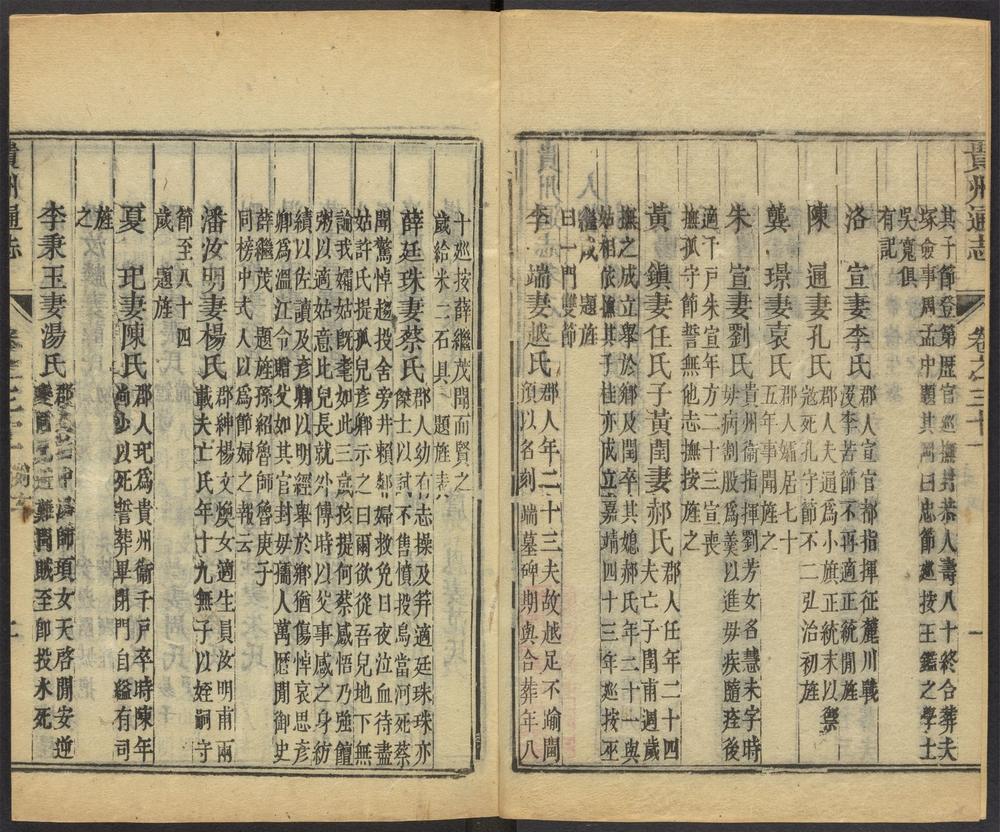 貴州通志
卷之三十一
一
其子節登第歷官巡撫封恭人壽八十終合葬夫
塚僉事周孟中題其
曰忠節巡按王鑑之學士
吳寬俱
有記
洛 宣妻李氏
郡人宣官都指揮征麓川戰
沒李苦節不再適正統閒旌
陳 通妻孔氏
郡人夫通爲小旗正統末以禦
寇死孔守節不二弘治初旌
龔 璟妻袁氏
郡人孀居七十
五年事聞旌之
朱 宣妻劉氏
貴州衛指揮劉芳女名慧未字時
毋病劏股爲羹以進毋疾隨痊後
適千戶朱宣年方二十三宣喪
撫孤守節誓無他志撫按旌之
黃 鎮妻任氏子黃閏妻郝氏
郡人任年二十四
夫亡子閏甫週歲
撫之成立舉於鄉及閏卒其媳郝氏年二十一與
姑相依撫其子桂亦成立嘉靖四十三年巡按巫
繼咸 題旌
曰一門雙節
李 端妻越氏
郡人年二十三夫故越足不踰閫
預以名刻端墓碑期與合葬年八
十巡按薛繼茂聞而賢之
歲給米二石具 題旌表
薛廷珠妻蔡氏
郡人幼有志操及笄適廷珠珠亦
傑士以試不售憤投烏當河死蔡
聞驚悼趨投舍旁井賴鄰婦救免日夜泣血待盡
姑許氏提孤兒彥卿示之曰爾欲從吾兒地下無
論我孀姑旣耄如此三歲孩提何蔡感悟乃強饘
粥以適姑意比兒長就外傅時以父事感之身紡
績以佐讀及彥卿以明經舉於鄉猶傷悼哀思彥
卿爲溫江令贈父如其官封毋孺人萬曆閒御史
薛繼茂 題旌孫紹魯師魯庚子
同榜中式人以爲節婦之報云
潘汝明妻楊氏
郡紳楊文煥女適生員汝明甫兩
載夫亡氏年十九無子以姪嗣守
節至八十四
歲 題旌
夏 玘妻陳氏
郡人玘爲貴州衛千戶卒時陳年
尚少以死誓葬畢閉門自縊有司
旌
之
李秉玉妻湯氏
女天啓閒安逆
難聞賊至卽投水死
貴州通志
二